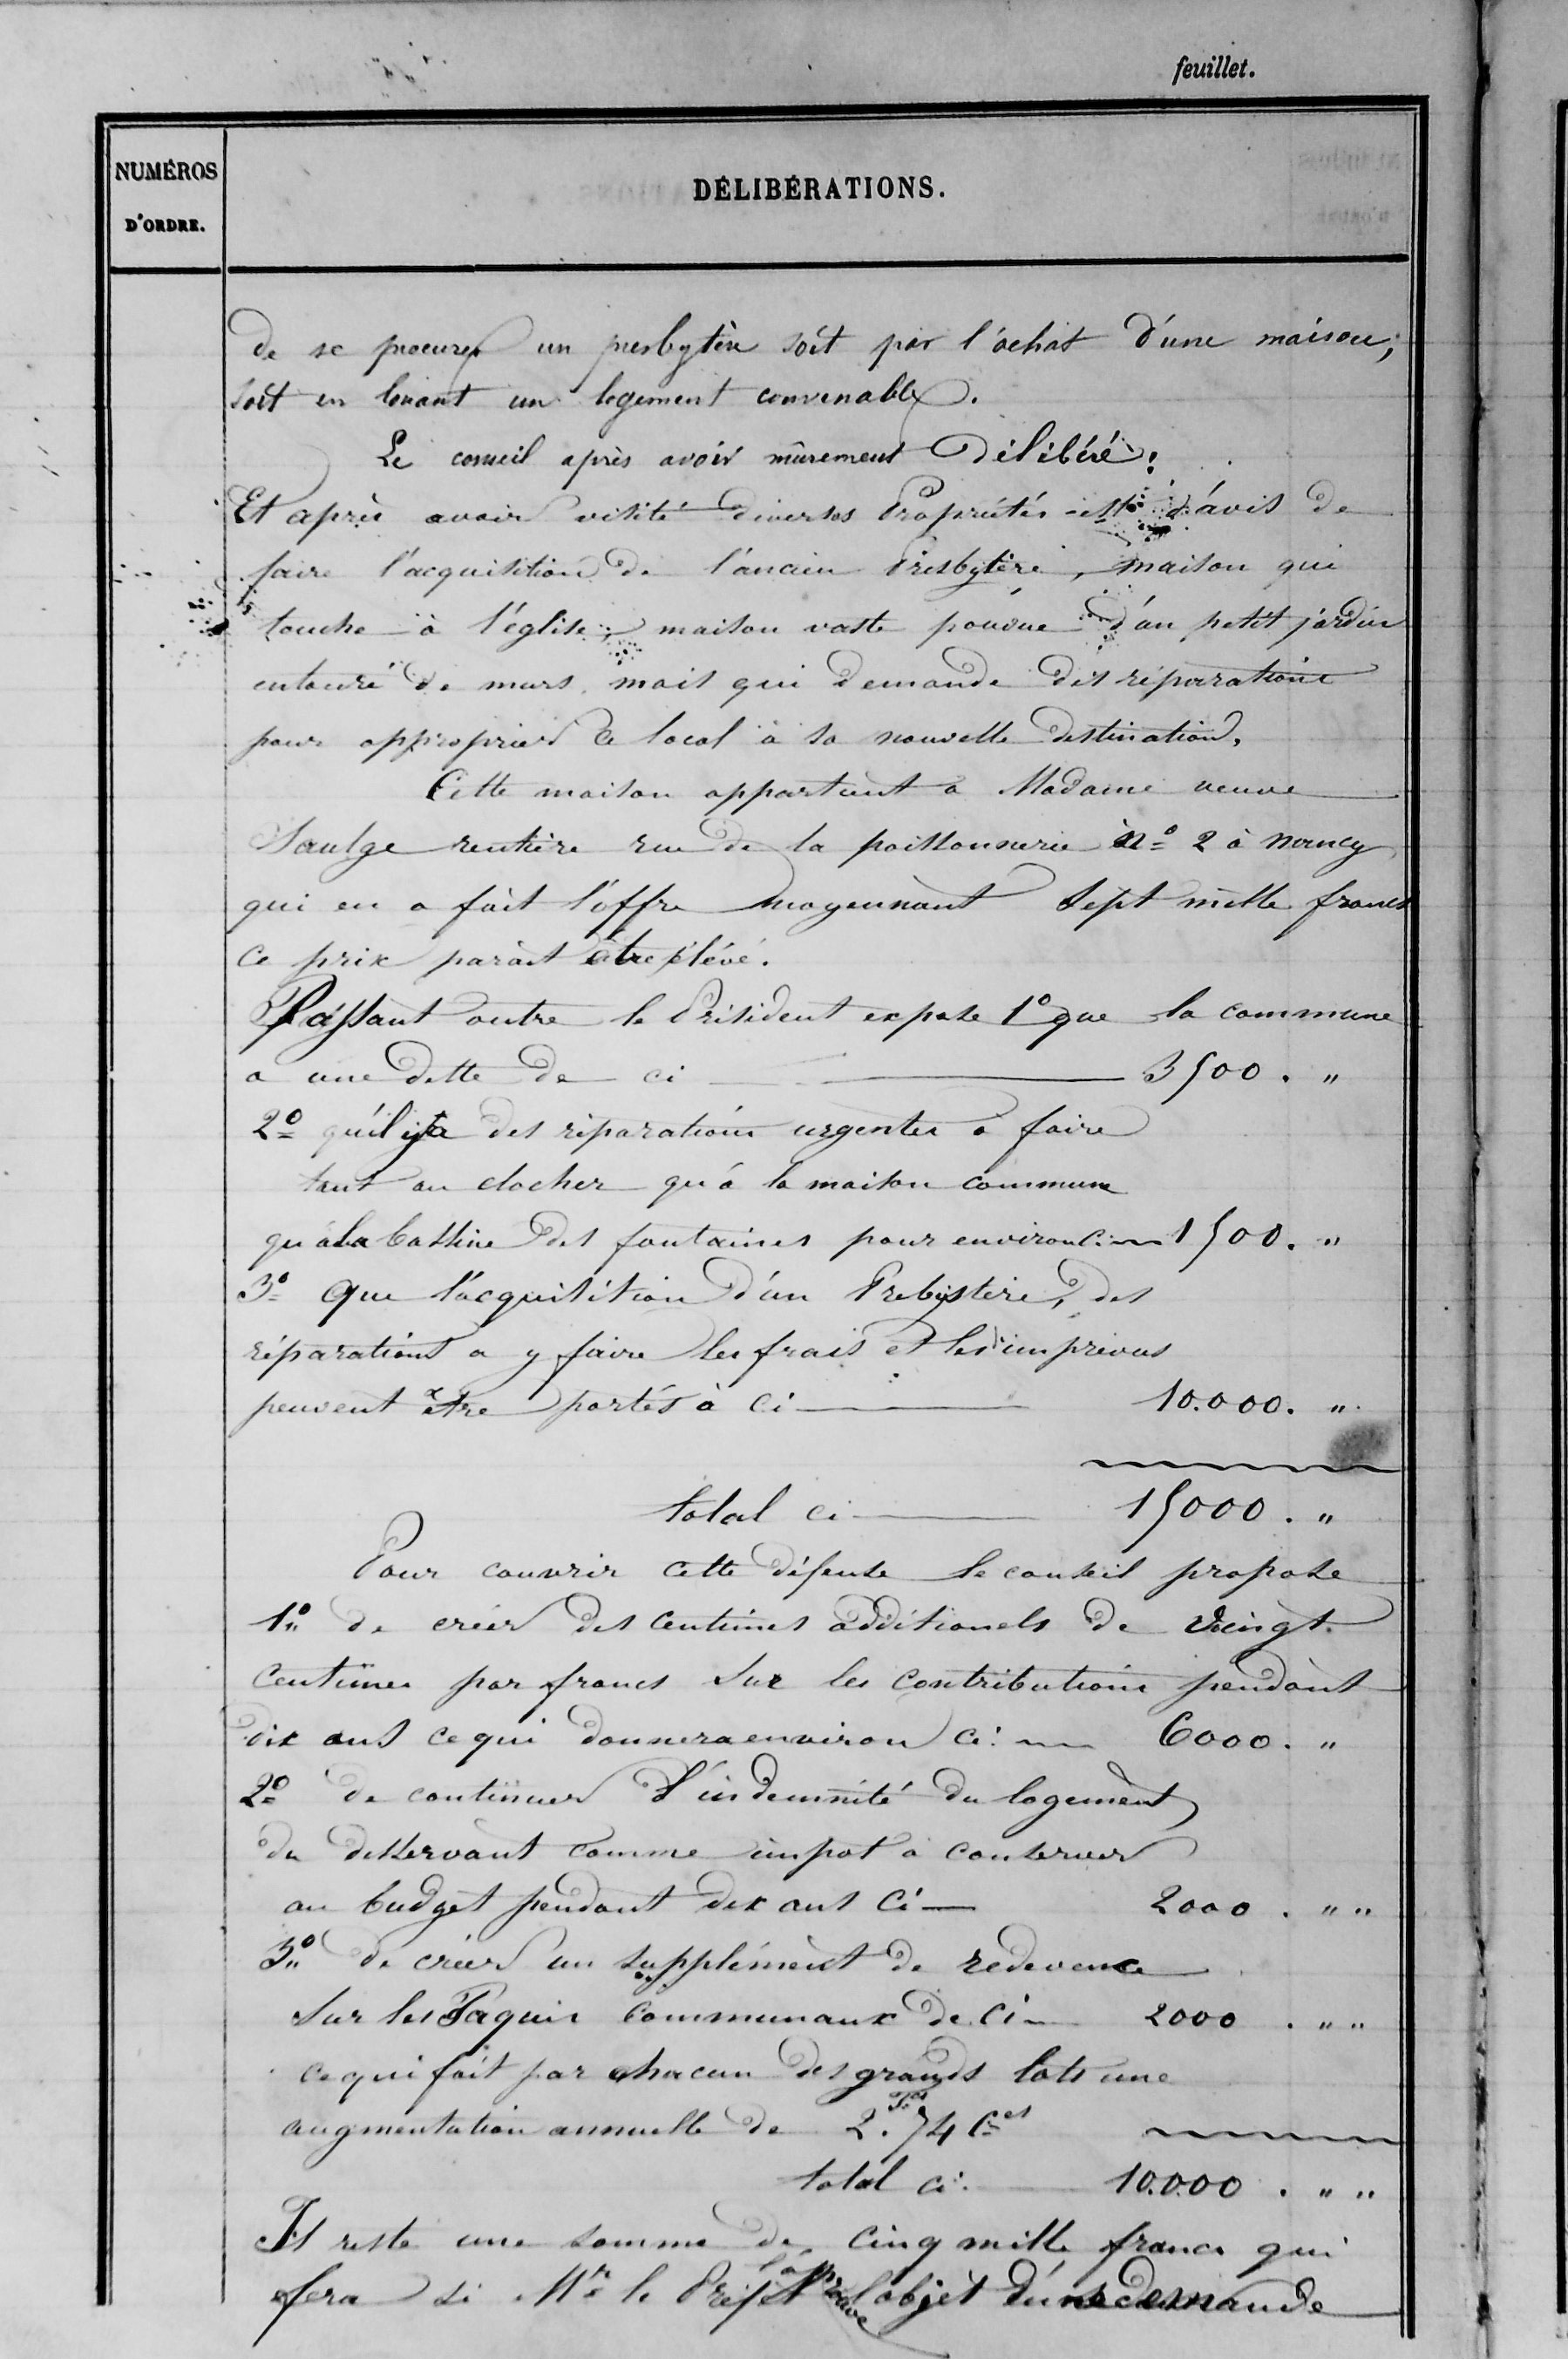 feuillet.
NUMÉROS
D'ORDRE.
DÉLIBÉRATIONS.
de se procurer un presbytère soit par l'achat d'une maison,
soit en louant un logement convenable.
Le conseil après avoir mûrement délibéré:
Et après avoir visité diverses Propriétés est d'avis de
faire l'acquisition de l'ancien Presbytère, maison qui
touche à l'église, maison vaste pouvue d'un petit jardin
entouré de murs, mais qui demande des réparations
pour approprier ce local à sa nouvelle destination.
Cette maison appartient a Madame veuve
Saulge rentière rue de la poissonnerie n° 2 à Nancy
qui en a fait l'offre moyennant sept mille francs
ce prix parait être élévé.
Passant outre le Président expose 1° que la commune
a une dette de ci 3500. "
2° qu'il y a des réparations urgentes à faire
tant au clocher qu'à la maison commune
qu'à la bassine des fontaines pour environ ci 1500. "
3° Que l'acquisition d'un Prebystère, des
réparations a y faire les frais et les imprévus
peuvent être portés à ci 10.000. "
total ci 15000. "
Pour couvrir cette dépense le conseil propose
1° de créer des centimes additionels de vingt
centimes par francs sur les contributions pendant
dix ans ce qui donnera environ ci: 6000. "
2° de continuer l'indemnité du logement
du desservant comme impot à conserver
au budget pendant dix ans ci 2000. " "
3° de créer un supplément de redevence
sur les Paquis communaux de ci 2000. " "
ce qui fait par chacun des grands lots une
augmentation annuelle de 2.fs 74 Ces
total ci: 10.000. " "
Il reste une somme de cinq mille francs qui
fera si Mr le Préfet l'approuve l'objet d'une demande